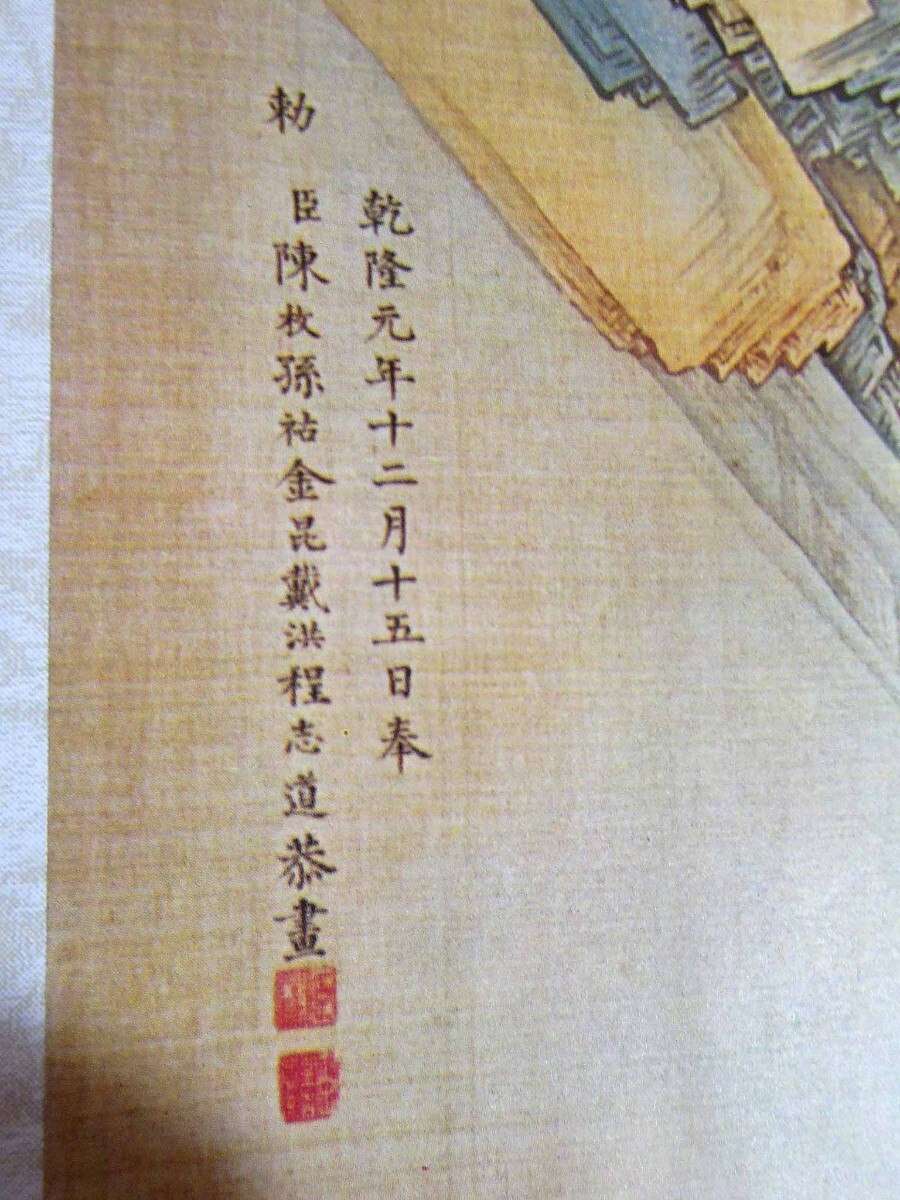 乾隆元年十二月十五日奉
勅
臣陳枚孫祜金昆戴洪程志道恭畫